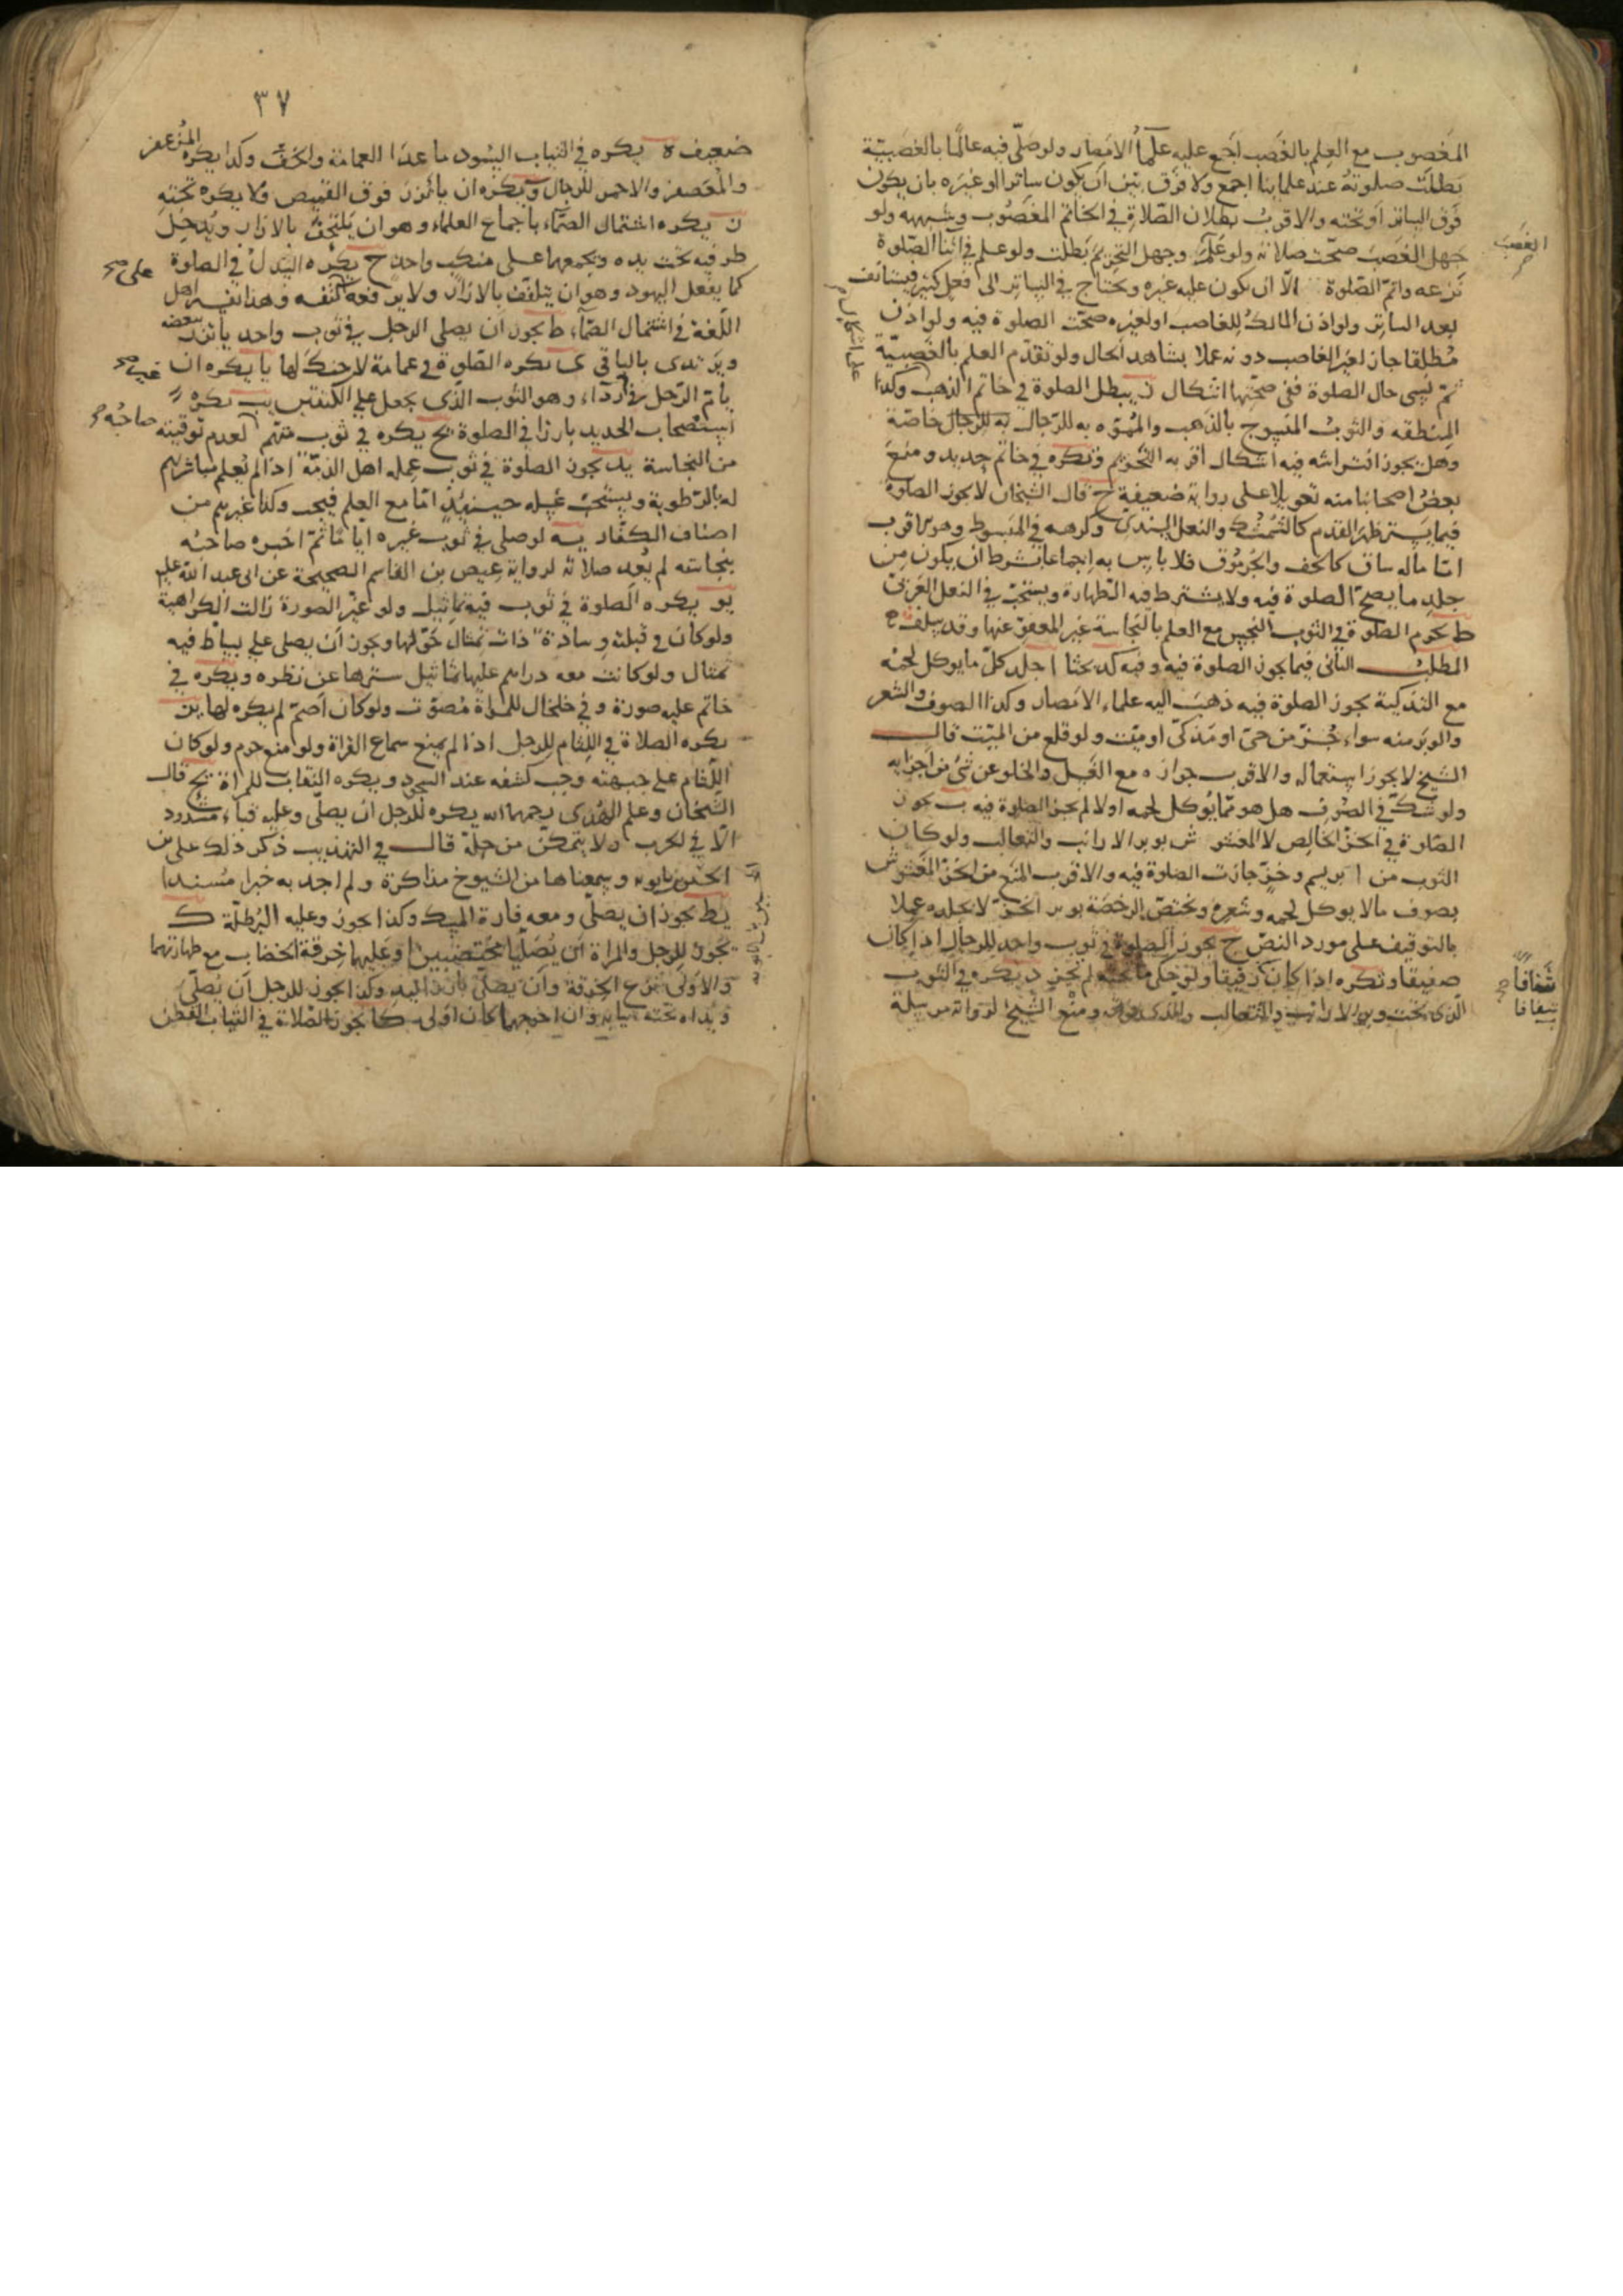 المغصوب مع العلم بالغصب اجمع عليه علمآء الامصار ولو صلّى فيه عالمًا بالغصبيّة
بطلت صلوته عند علماينا اجمع ولا فرق بين ان يكون ساترا او غيره بان يكون
فوق الساتر او تحته والاقرب بطلان الصّلاة في الخاتم المغصوب وشبهه ولو
جهل الغصب صحّت صلاته ولو علم وجهل التحريم بطلت ولو علم في اثنا الصّلوة
نزعه واتمّ الصّلوة الّا ان يكون عليه غيره ويحتاج في الساتر الى فعل كثير فيستانف
بعد الساتر ولو اذن المالك للغاصب او لغيره صحّت الصلوة فيه ولو اذن
مُطلقا جاز لغير الغاصب دونه عملا بشاهد الحال ولو تقدّم العلم بالغصبيّة
ثمّ نسى حال الصلوة ففى صحّتها اشكال ز يبطل الصلوة في خاتم الذهب وكذا
المنطقه والثوب المنسوج بالذهب والمُمَوّه به للرّجال خاصّة
وهل يجوز افتراشه فيه اشكال اقربه التّحريم ويكره في خاتم حديد ومنع
بعض اصحابنا منه تعويلا على رواية ضعيفة ح قال الشيخان لا يجوز الصلوة
فيما يستر ظهر القدم كالشّمُشك والنعل السندى وكرهه في المبسوط وهو الاقرب
امّا ماله ساق كالخف والجرموق فلا باس به اجماعا بشرط ان يكون من
جلد ما يصحّ الصلوة فيه ولا يشترط فيه الطهارة ويستحبّ في النعل العَربىّ
ط يحرم الصلوة في الثوب النجس مع العلم بالنجاسة غير المعفوّ عنها وقد سلف
المطلب الثانى فيما يجوز الصلوة فيه وفيه كد بحثا ا جلد كلّ ما يوكل لحمه
مع التذكية يجوز الصلوة فيه ذهب اليه علماء الامصار وكذا الصوف والشعر
والوبر منه سواء جُزّ من حىّ او مذكّى او ميّت ولو قلع من الميّت قال
الشيخ لا يجوز استعماله والاقرب جوازه مع الغسل والخلو عن شئ من اجزايه
ولو شكّ في الصوف هل هو ممّا يُوكل لحمه او لا لم يجز الصلوة فيه ب يجوز
الصّلوة في الخزّ الخالص لا المغشوش بوبر الارانب والثعالب ولو كان
الثوب من ابريسم وخزّ جازت الصلوة فيه والاقرب المنع من الخزّ المغشوش
بصوف مالا يوكل لحمه وشعره وتختصّ الرخصة بوبر الخزّ لا بجلده عملا
بالتوقيف على مورد النصّ ج يجوز الصلوة في ثوب واحد للرجال اذا كان
صفيقا وتكره اذا كان رقيقا ولو حكى ما تحته لم يجز د يكره في الثوب
الّذى تحت وبر الارانب والثعالب والذى فوقه ومنع الشّيخ لرواية مرسلة
الغصب
على اشكال
شَفافًا
شفافا
٣٧
ضعيف ه يكره في الثياب السُود ما عدا العمامة والخفّ وكذا يكره المُزعفر
والمُعصفر والاحمر للرجال و يكره ان يأتزر فوق القميص ولا يكره تحته
ز يكره اشتمال الصمّاء باجماع العلماء وهو ان يلتحف بالازار ويُدخل
طرفيه تحت يده ويجمعهما على منكب واحد ح يكره السّدل في الصلوة
كما يفعل اليهود وهو ان يتلفّف بالازار ولا يرفعه على كتفه وهذا تفسير اهل
اللّغة في اشتمال الصمّاء ط يجوز ان يصلى الرجل في ثوب واحد يأتزر ببعضه
ويرتدى بالباقى ى يكره الصّلوة في عمامة لا حنك لها يا يكره ان
يأتمّ الرّجل في غير رداء وهو الثوب الّذى يجعل على الكتفين يب يكره
استصحاب الحديد بارزا في الصلوة يج يكره في ثوب متهم صاحبُه لعدم توقيته
من النجاسة يد يجوز الصلوة في ثوب عمله اهل الذمّة اذا لم يُعلم مباشرتهم
له بالرّطوبة ويستحبّ غسله حينئذٍ امّا مع العلم فيجب وكذا غيرهم من
اصناف الكفّار يه لو صلى في ثوب غيره ايّامًا ثمّ اخبره صاحبُه
بنجاسته لم يُعد صلاته لرواية عيص بن القاسم الصحيحة عن ابى عبد الله عليه
يو يكره الصلوة في ثوب فيه تماثيل ولو غيّر الصورة زالت الكراهية
ولو كان في قبلته وسادة ذات تمثال حوّلها ويجوز ان يصلى على بساط فيه
تمثال ولو كانت معه دراهم عليها تماثيل سترها عن نظره ويكره في
خاتم عليه صورة وفي خلخال للمراة مُصوّت ولو كان اصمّ لم يكره لها يز
يكره الصلاة في اللثام للرجل اذا لم يمنع سماع القراة ولو منع حرم ولو كان
اللّثام على جبهته وجب كشفه عند السجود ويكره النقاب للمراة يح قال
الشّيخان وعلم الهُدى رحمهما الله يكره للرجل ان يصلّى وعليه قباء مشدود
الّا في الحرب ولا يتمكّن من حلّه قال في التهذيب ذكر ذلك على بن
الحسين بابويه وسمعناها من الشيوخ مذاكرة ولم اجد به خبرا مُسندا
يط يجوز ان يصلّى ومعه فارة المسك وكذا يجوز وعليه البُرطلّة ك
يجوز للرجل والمراة ان يُصلّيا مختضبين او عليهما خِرقة الخضاب مع طهارتهما
والاولى نزع الخرقة وان يصلّى بارز اليد وكذا يجوز للرجل ان يُصلّى
ويداه تحته ثيابه وان اخرجهما كان اولى كا يجوز الصّلاة في الثياب القطن
على صح
غير صح
صاحبُه